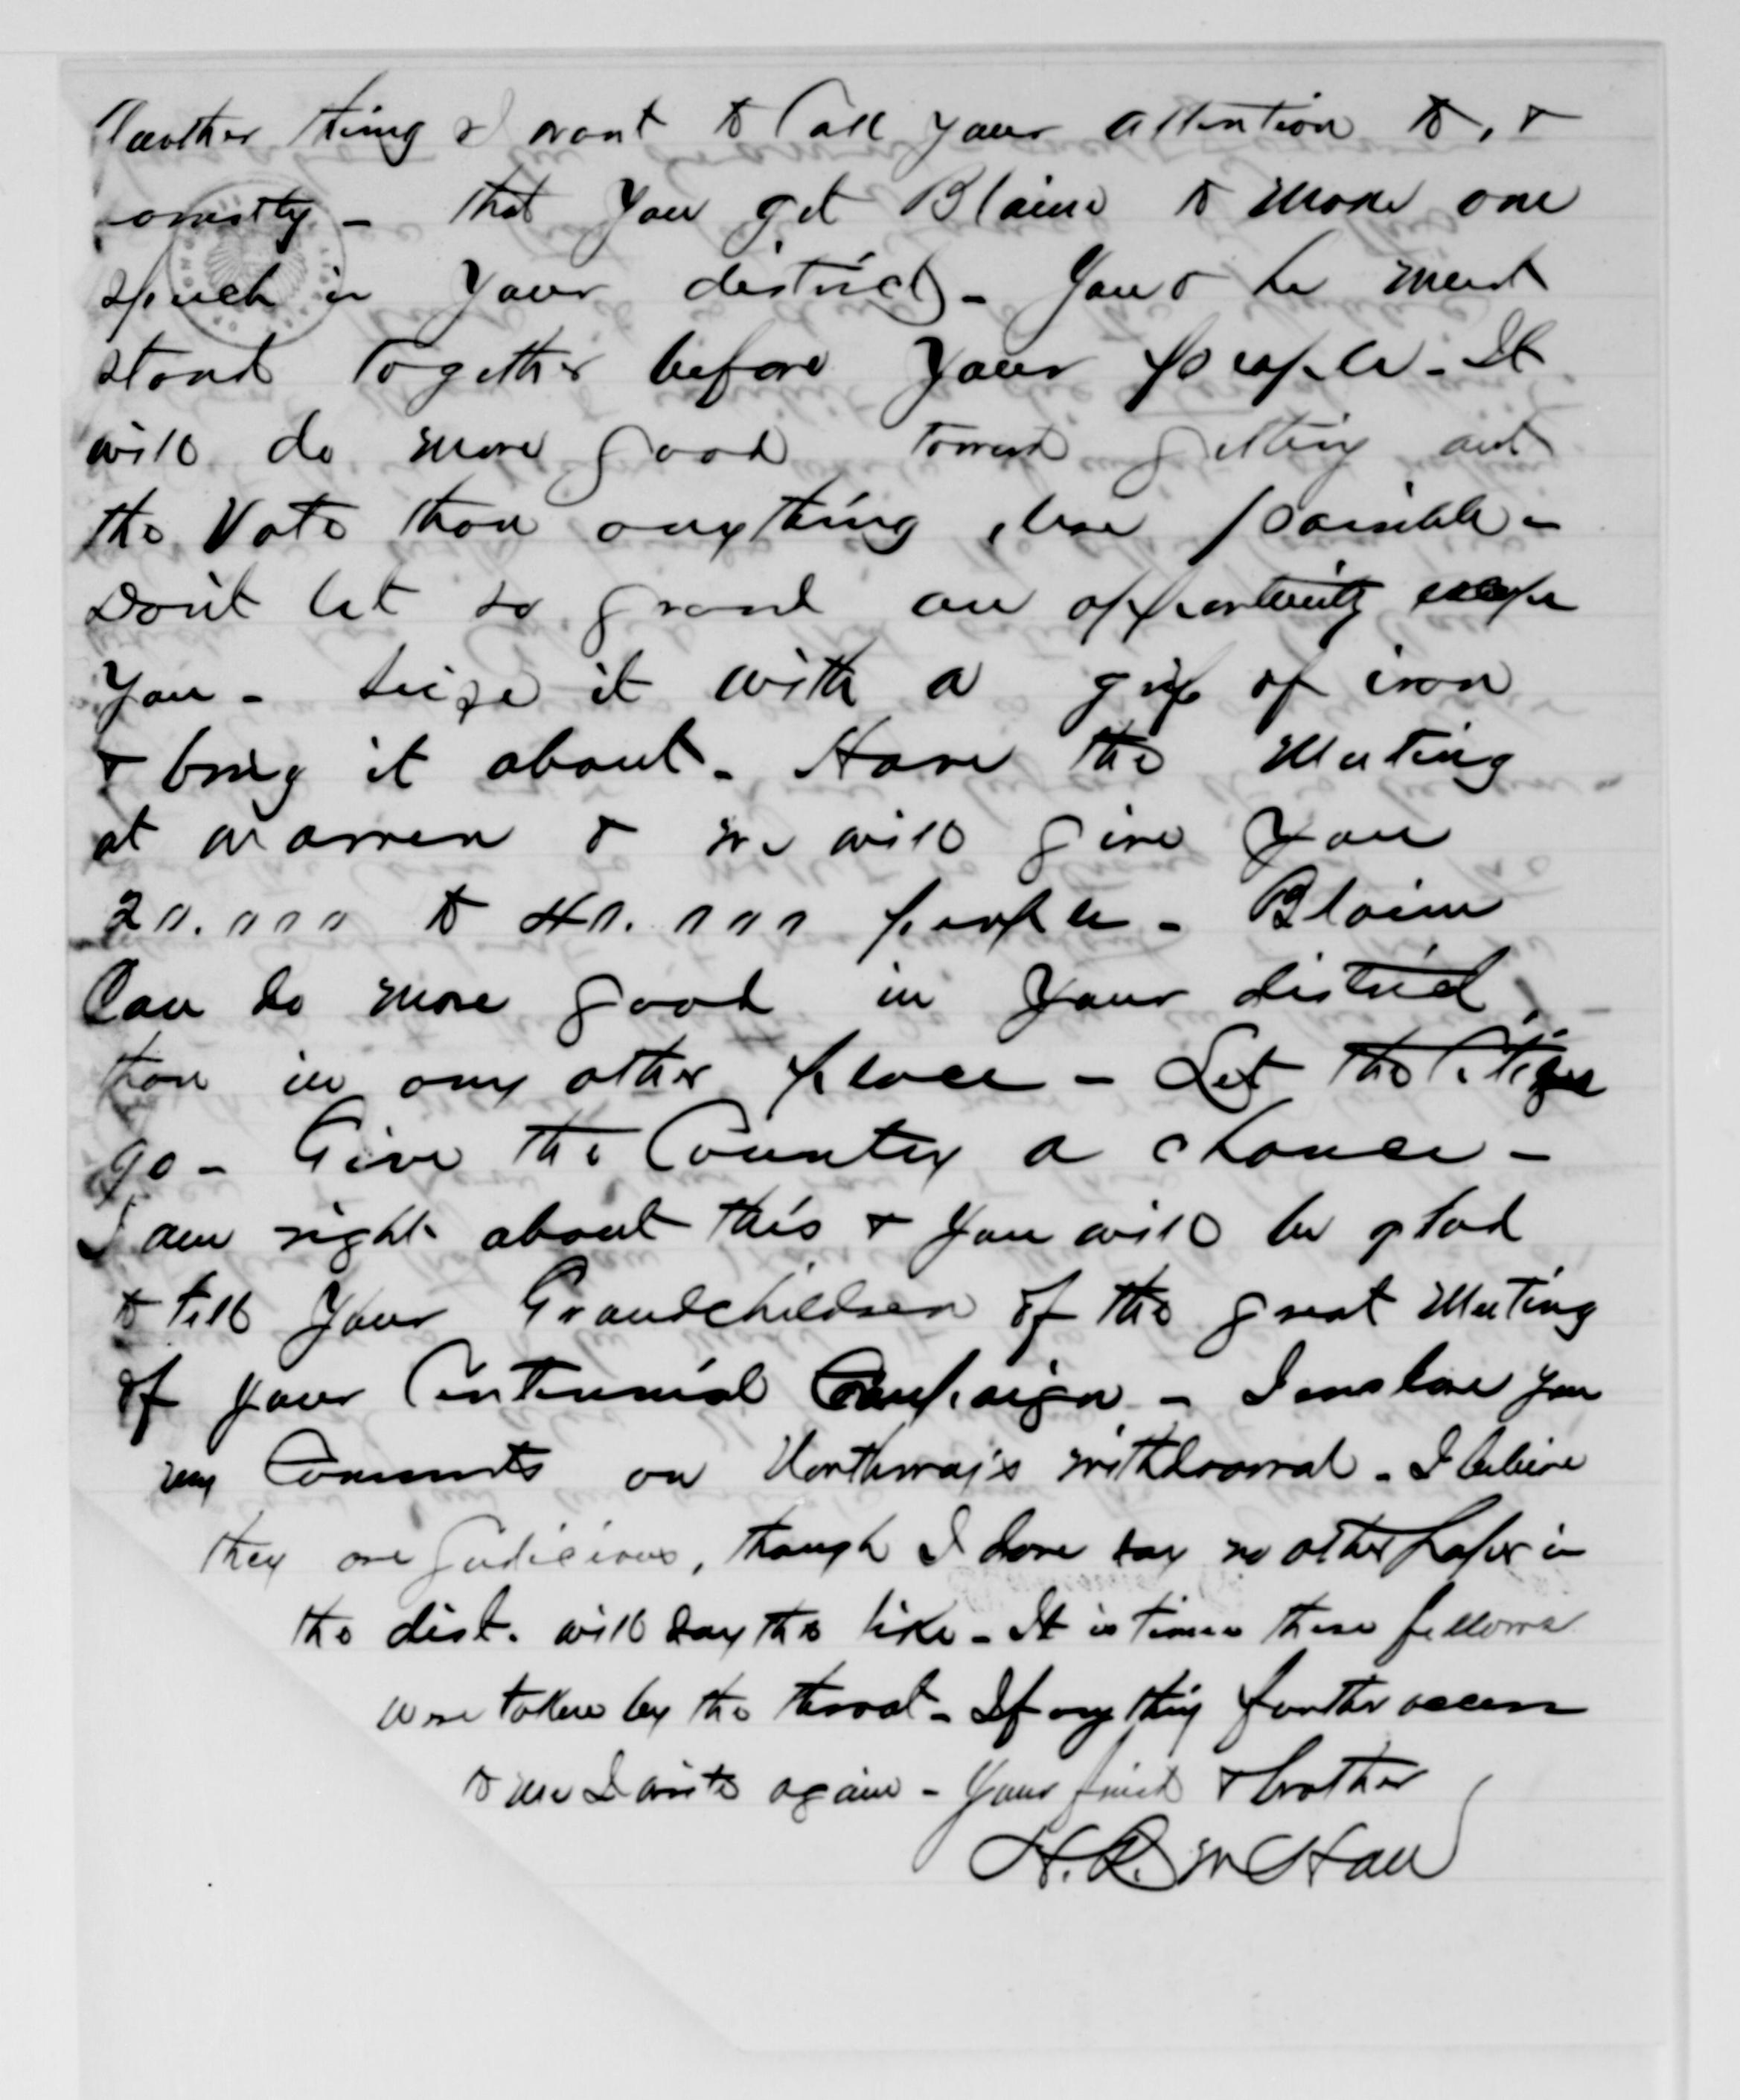 Another thing I want to call your attention to, &
- that you get Blaine to make one
speech in your district - You & he must
stand together before your people - It
will do more good toward getting out
the Vote than anything else possible -
Don't let so grand an opportunity escape
you - seize it with a grip of iron
& bring it about - Have the Meeting
at Warren & we will give you
20.000 to 40.000 people - Blaine
Can do more good in your district,
than in any other place - Let the Cities
go - Give the Country a chance -
I am right about this & you will be glad
to tell your Grandchildren of the great Meeting
of your Centennial Campaign - I enclose you
my Comments on Northway's withdrawal - I believe
they are judicious, though I dare say no other paper in
the dist. will say the like - It is time these fellows
were taken by the throat - If anything further occurs
to me I write again - Your friend & brother